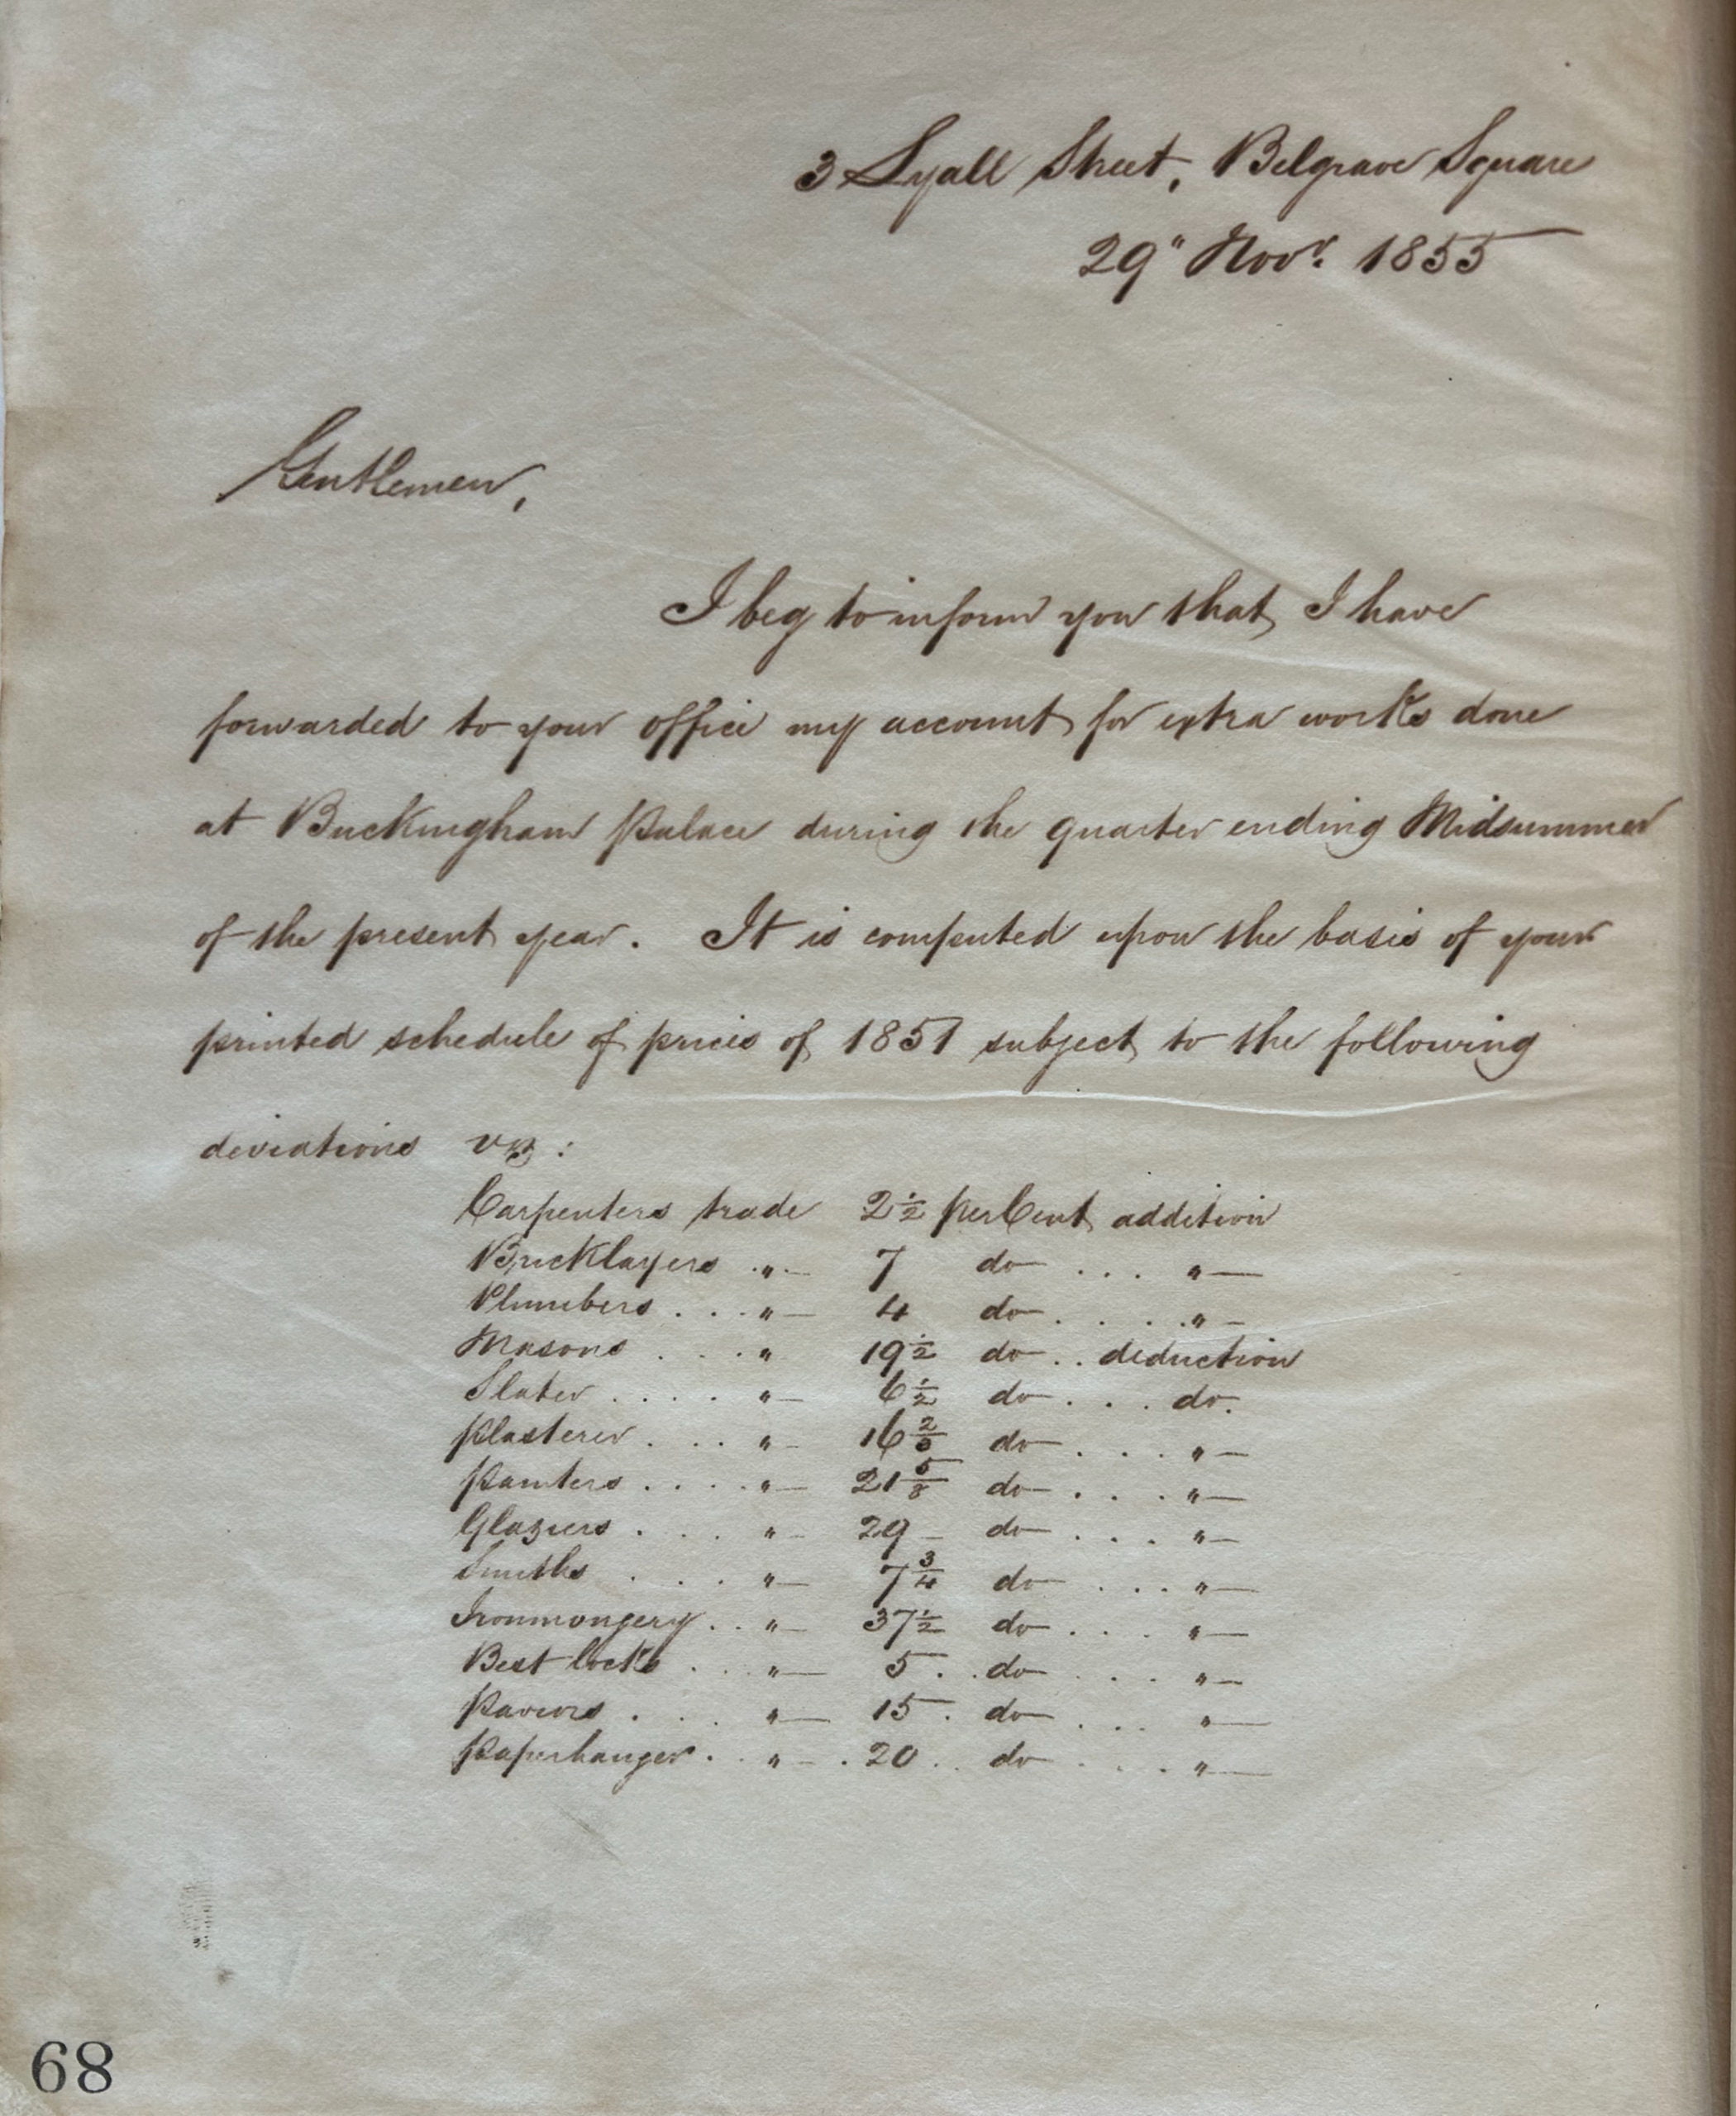 3 Lyall Street, Belgrave Square
29" Novr. 1855
Gentlemen,
I beg to inform you that I have
forwarded to your office my account for extra works done
at Buckingham Palace during the quarter ending Midsummer
of the present year. It is computed upon the basis of your
printed schedule of prices of 1851 subject to the following
deviations viz:
Carpenters trade 2½ per Cent addition
Bricklayers . " — 7 do . . . " —
Plumbers . . . " — 4 do . . . . " —
Masons . . . " 19½ do . . deduction
Slater . . . . " — 6½ do . . . do.
Plasterer . . . " — 16⅔ do . . . " —
Painters . . . . " — 21⅝ do . . . " —
Glaziers . . . " — 29 — do . . . " —
Smiths . . . " — 7¾ do . . . " —
Ironmongery . . " — 37½ do . . . " —
Best locks . . " — 5 . . do . . . " —
Paviors . . . " — 15 . do . . . " —
Paperhanger . . " — . 20 . . do . . . " —
68